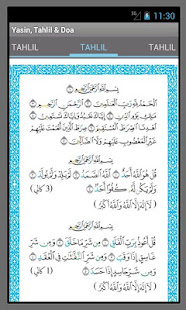 11:30
Yasin, Tahlil & Doa
TAHLIL TAHLIL TAHLIL
بِسْمِ اللَّهِ الرَّحْمَٰنِ الرَّحِيمِ
الْحَمْدُ لِلَّهِ رَبِّ الْعَالَمِينَ الرَّحْمَٰنِ الرَّحِيمِ
مَالِكِ يَوْمِ الدِّينِ إِيَّاكَ نَعْبُدُ وَإِيَّاكَ نَسْتَعِينُ اهْدِنَا
الصِّرَاطَ الْمُسْتَقِيمَ صِرَاطَ الَّذِينَ أَنْعَمْتَ عَلَيْهِمْ
غَيْرِ الْمَغْضُوبِ عَلَيْهِمْ وَلَا الضَّالِّينَ
بِسْمِ اللَّهِ الرَّحْمَٰنِ الرَّحِيمِ
قُلْ هُوَ اللَّهُ أَحَدٌ اللَّهُ الصَّمَدُ لَمْ يَلِدْ وَلَمْ يُولَدْ
وَلَمْ يَكُنْ لَهُ كُفُوًا أَحَدٌ (3 كالي)
لَا إِلَٰهَ إِلَّا اللَّهُ وَاللَّهُ أَكْبَرُ
بِسْمِ اللَّهِ الرَّحْمَٰنِ الرَّحِيمِ
قُلْ أَعُوذُ بِرَبِّ الْفَلَقِ مِنْ شَرِّ مَا خَلَقَ وَمِنْ شَرِّ
غَاسِقٍ إِذَا وَقَبَ وَمِنْ شَرِّ النَّفَّاثَاتِ فِي الْعُقَدِ
وَمِنْ شَرِّ حَاسِدٍ إِذَا حَسَدَ (1 كالي)
لَا إِلَٰهَ إِلَّا اللَّهُ وَاللَّهُ أَكْبَرُ